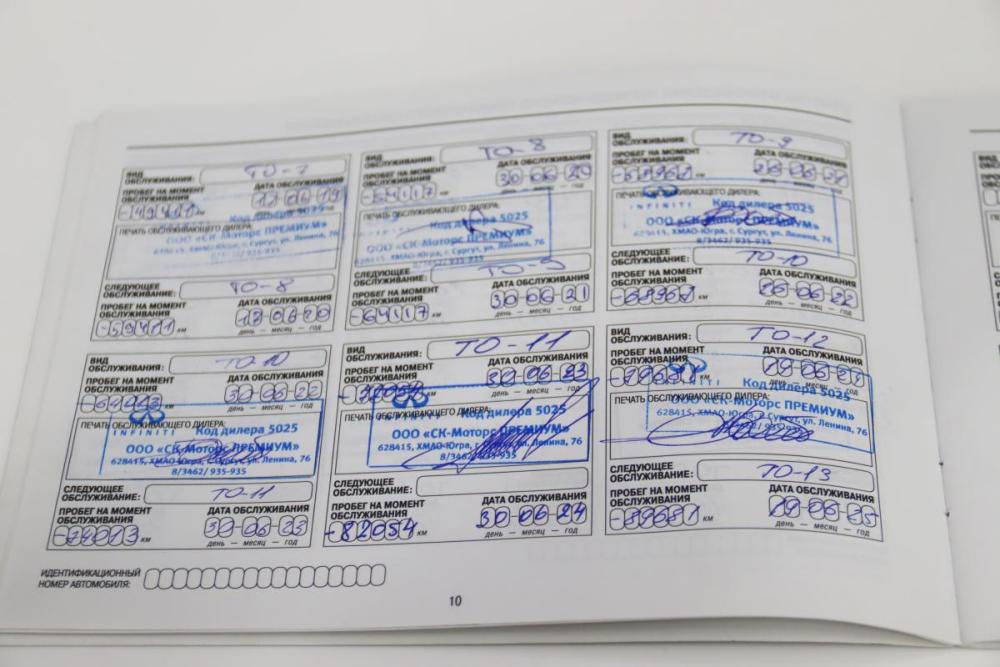 ВИД
ОБСЛУЖИВАНИЯ:
ТО-7
ПРОБЕГ НА МОМЕНТ
ОБСЛУЖИВАНИЯ
ДАТА ОБСЛУЖИВАНИЯ
КМ
ПЕЧАТЬ ОБСЛУЖИВАЮЩЕГО ДИЛЕРА:
Код дилера 5025
ООО «СК-Моторс ПРЕМИУМ»
628415, ХМАО-Югра, г. Сургут, ул. Ленина, 76
СЛЕДУЮЩЕЕ
ОБСЛУЖИВАНИЕ:
ТО-8
ПРОБЕГ НА МОМЕНТ
ОБСЛУЖИВАНИЯ
ДАТА ОБСЛУЖИВАНИЯ
-59411 КМ
день — месяц — год
ВИД
ОБСЛУЖИВАНИЯ:
ТО-8
ПРОБЕГ НА МОМЕНТ
ОБСЛУЖИВАНИЯ
ДАТА ОБСЛУЖИВАНИЯ
КМ
ПЕЧАТЬ ОБСЛУЖИВАЮЩЕГО ДИЛЕРА:
Код дилера 5025
ООО «СК-Моторс ПРЕМИУМ»
628415, ХМАО-Югра, г. Сургут, ул. Ленина, 76
8/3462/ 935-935
СЛЕДУЮЩЕЕ
ОБСЛУЖИВАНИЕ:
ТО-9
ПРОБЕГ НА МОМЕНТ
ОБСЛУЖИВАНИЯ
ДАТА ОБСЛУЖИВАНИЯ
-64117 КМ
30 06 21
день — месяц — год
ВИД
ОБСЛУЖИВАНИЯ:
ТО-9
ПРОБЕГ НА МОМЕНТ
ОБСЛУЖИВАНИЯ
ДАТА ОБСЛУЖИВАНИЯ
КМ
ПЕЧАТЬ ОБСЛУЖИВАЮЩЕГО ДИЛЕРА:
INFINITI
Код дилера 5025
ООО «СК-Моторс ПРЕМИУМ»
628415, ХМАО-Югра, г. Сургут, ул. Ленина, 76
8/3462/ 935-935
СЛЕДУЮЩЕЕ
ОБСЛУЖИВАНИЕ:
ТО-10
ПРОБЕГ НА МОМЕНТ
ОБСЛУЖИВАНИЯ
ДАТА ОБСЛУЖИВАНИЯ
КМ
день — месяц — год
ВИД
ОБСЛУЖИВАНИЯ:
ТО-10
ПРОБЕГ НА МОМЕНТ
ОБСЛУЖИВАНИЯ
ДАТА ОБСЛУЖИВАНИЯ
КМ
30 06 22
ПЕЧАТЬ ОБСЛУЖИВАЮЩЕГО ДИЛЕРА:
INFINITI
Код дилера 5025
ООО «СК-Моторс ПРЕМИУМ»
628415, ХМАО-Югра, г. Сургут, ул. Ленина, 76
8/3462/ 935-935
СЛЕДУЮЩЕЕ
ОБСЛУЖИВАНИЕ:
ТО-11
ПРОБЕГ НА МОМЕНТ
ОБСЛУЖИВАНИЯ
ДАТА ОБСЛУЖИВАНИЯ
-74013 КМ
30 06 23
день — месяц — год
ВИД
ОБСЛУЖИВАНИЯ:
ТО-11
ПРОБЕГ НА МОМЕНТ
ОБСЛУЖИВАНИЯ
ДАТА ОБСЛУЖИВАНИЯ
30 06 23
ПЕЧАТЬ ОБСЛУЖИВАЮЩЕГО ДИЛЕРА:
INFINITI
Код дилера 5025
ООО «СК-Моторс ПРЕМИУМ»
628415, ХМАО-Югра, г. Сургут, ул. Ленина, 76
8/3462/ 935-935
СЛЕДУЮЩЕЕ
ОБСЛУЖИВАНИЕ:
ПРОБЕГ НА МОМЕНТ
ОБСЛУЖИВАНИЯ
ДАТА ОБСЛУЖИВАНИЯ
-82054 КМ
30 06 24
день — месяц — год
ВИД
ОБСЛУЖИВАНИЯ:
ТО-12
ПРОБЕГ НА МОМЕНТ
ОБСЛУЖИВАНИЯ
ДАТА ОБСЛУЖИВАНИЯ
КМ
ПЕЧАТЬ ОБСЛУЖИВАЮЩЕГО ДИЛЕРА:
INFINITI
Код дилера 5025
ООО «СК-Моторс ПРЕМИУМ»
628415, ХМАО-Югра, г. Сургут, ул. Ленина, 76
СЛЕДУЮЩЕЕ
ОБСЛУЖИВАНИЕ:
ТО-13
ПРОБЕГ НА МОМЕНТ
ОБСЛУЖИВАНИЯ
ДАТА ОБСЛУЖИВАНИЯ
-89681 КМ
день — месяц — год
ИДЕНТИФИКАЦИОННЫЙ
НОМЕР АВТОМОБИЛЯ:
10